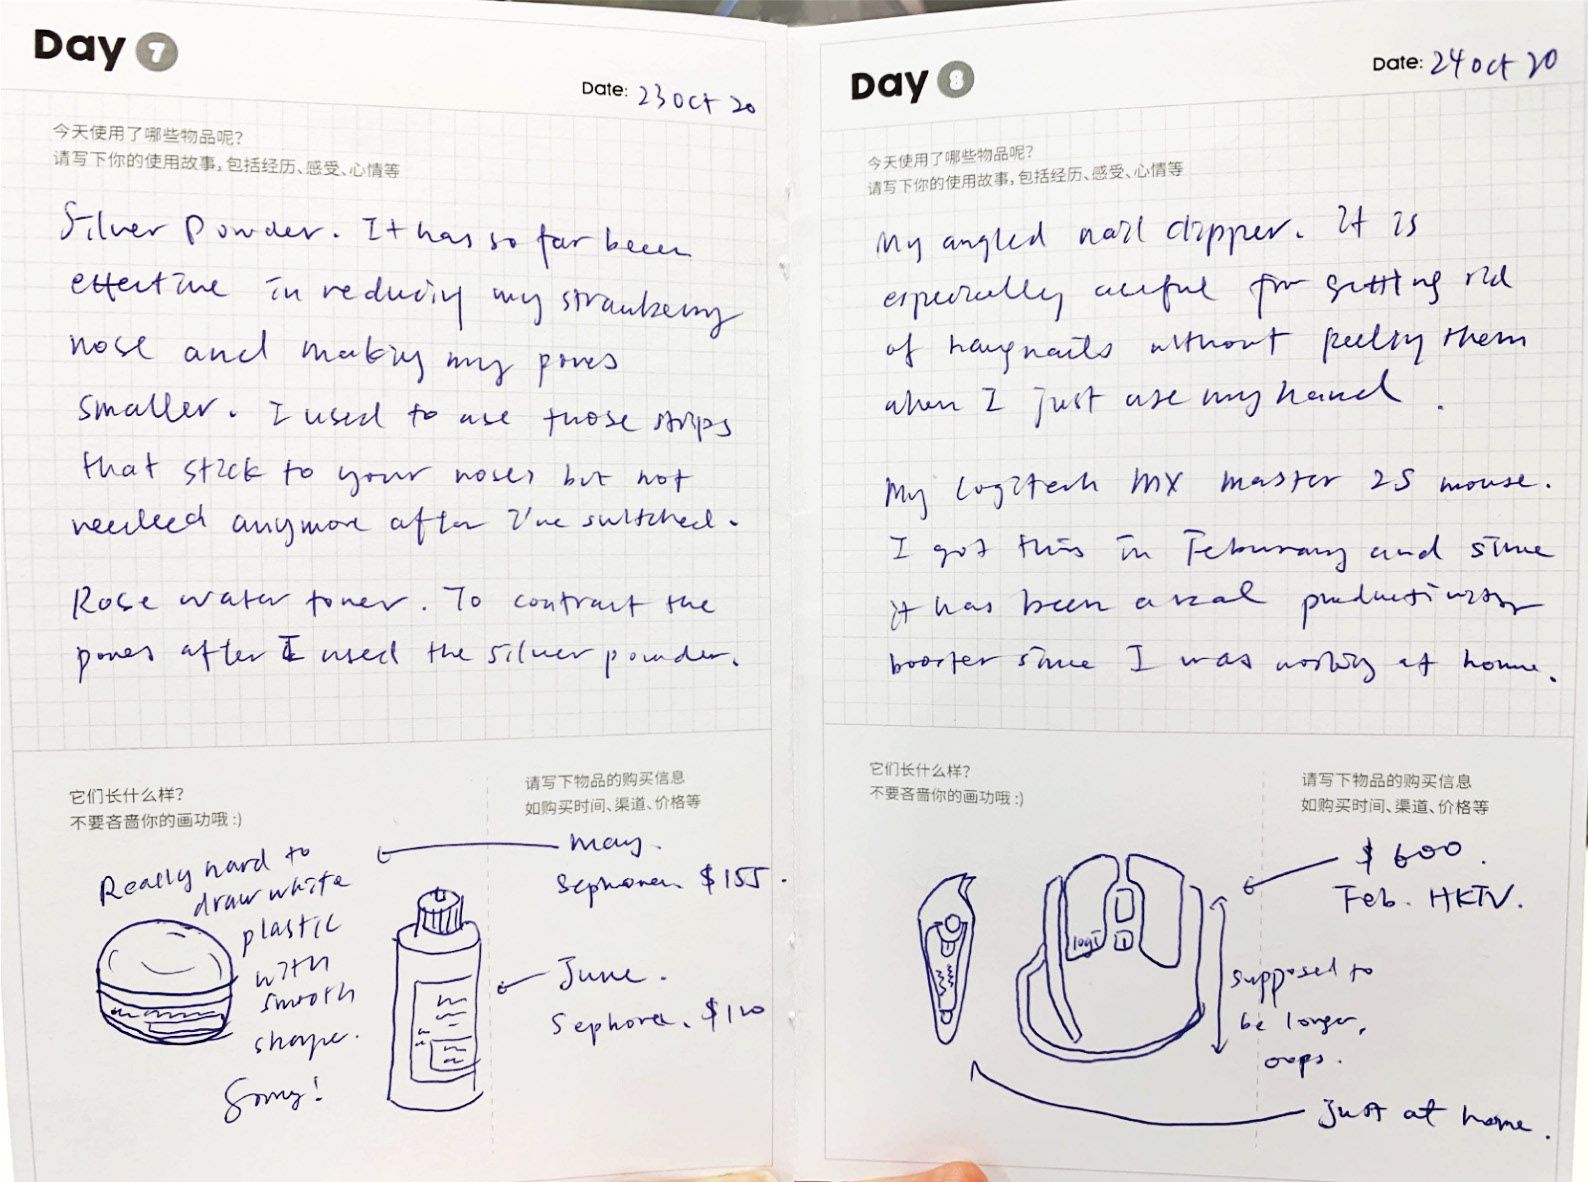 Day 7
Date: 23 Oct 20
今天使用了哪些物品呢？
请写下你的使用故事，包括经历、感受、心情等
Silver Powder. It has so far been
effective in reducing my strawberry
nose and making my pores
smaller. I used to use those strips
that stick to your noses but not
needed anymore after I've switched.
Rose water toner. To contract the
pores after I used the silver powder.
它们长什么样？
不要吝啬你的画功哦 :)
请写下物品的购买信息
如购买时间、渠道、价格等
Really hard to
draw white
plastic
with
smooth
shape.
Sorry!
May.
Sephora. $155.
June.
Sephora. $120
Day 8
Date: 24 Oct 20
今天使用了哪些物品呢？
请写下你的使用故事，包括经历、感受、心情等
My angled nail clipper. It is
especially useful for getting rid
of hangnails without peeling them
when I just use my hand.
My Logitech MX master 2S mouse.
I got this in Feburary and since
it has been a real productivity
booster since I was working at home.
它们长什么样？
不要吝啬你的画功哦 :)
请写下物品的购买信息
如购买时间、渠道、价格等
$600.
Feb. HKTV.
logi
supposed to
be longer,
oops.
just at home.